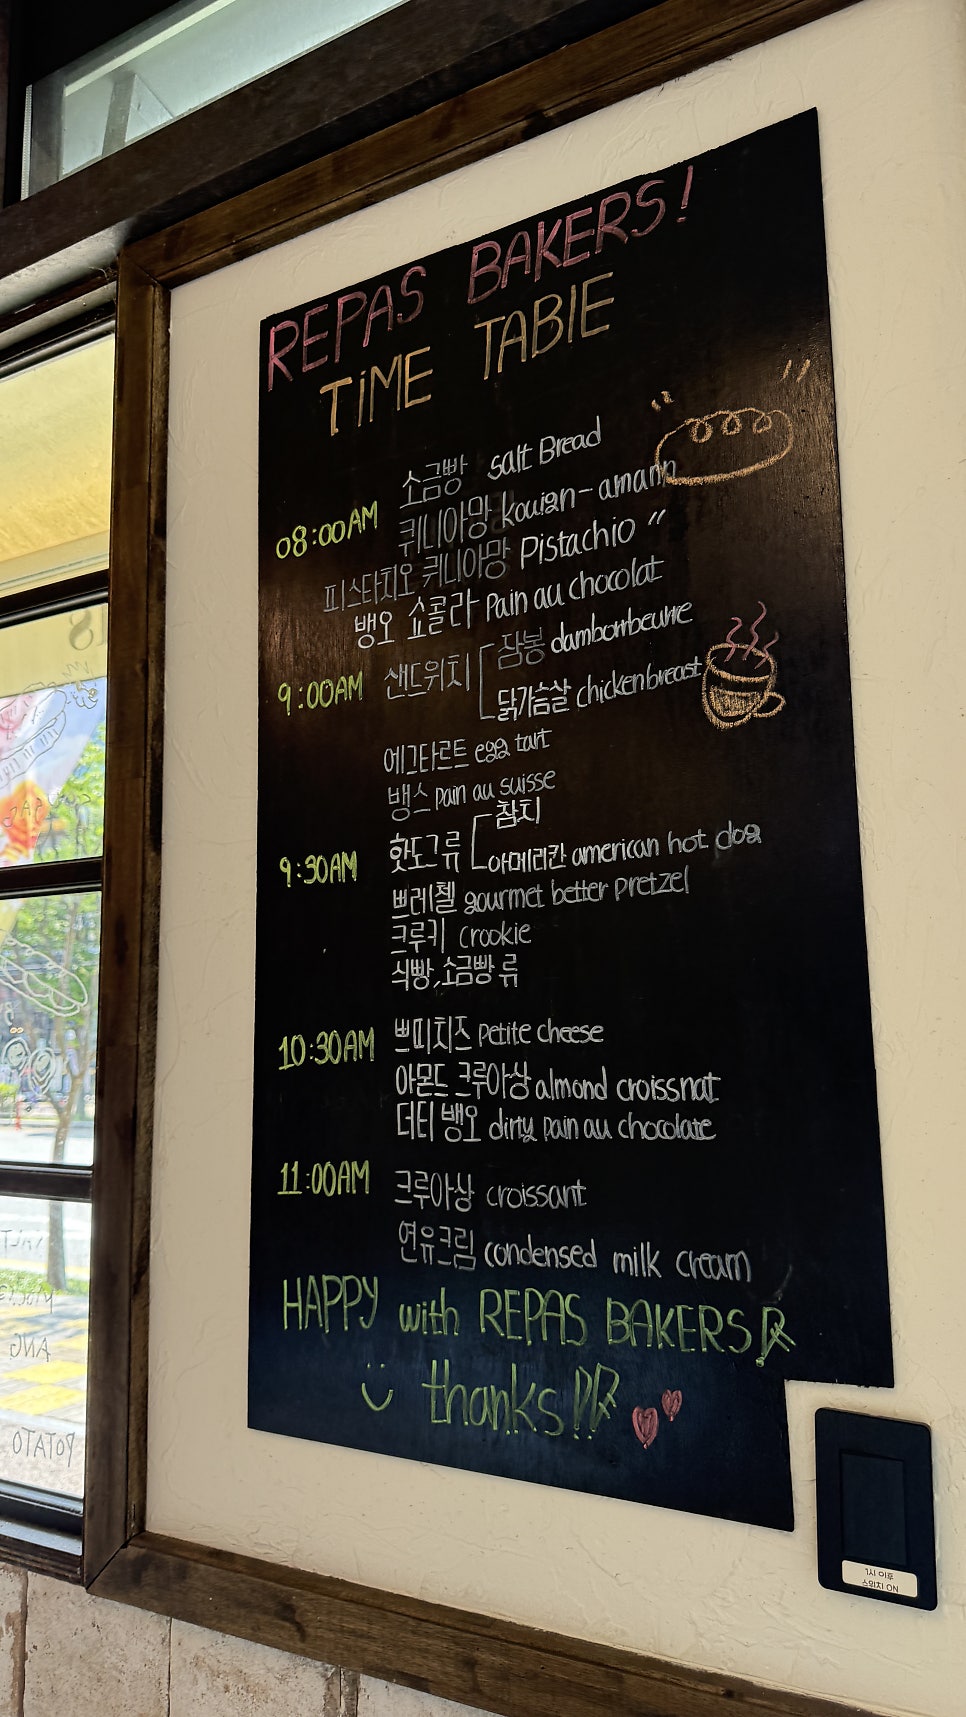 REPAS BAKERS!
TiME TABlE
08:00AM
소금빵 salt Bread
퀴니아망 kouign-amann
피스타치오 퀴니아망 Pistachio "
뱅오 쇼콜라 Pain au chocolat
9:00AM 샌드위치 잠봉 dambombeurre
닭가슴살 chicken breast
에그타르트 egg tart
뱅스 pain au suisse
참치
9:30AM 핫도그류 아메리칸 american hot dog
쁘레첼 gourmet better pretzel
크루키 crookie
식빵,소금빵 류
10:30AM 쁘띠치즈 petite cheese
아몬드 크루아상 almond croissnat
더티 뱅오 dirty pain au chocolate
11:00AM 크루아상 croissant
연유크림 condensed milk cream
HAPPY with REPAS BAKERS
thanks!
1시 이후
스위치 ON
POTATO
ANG